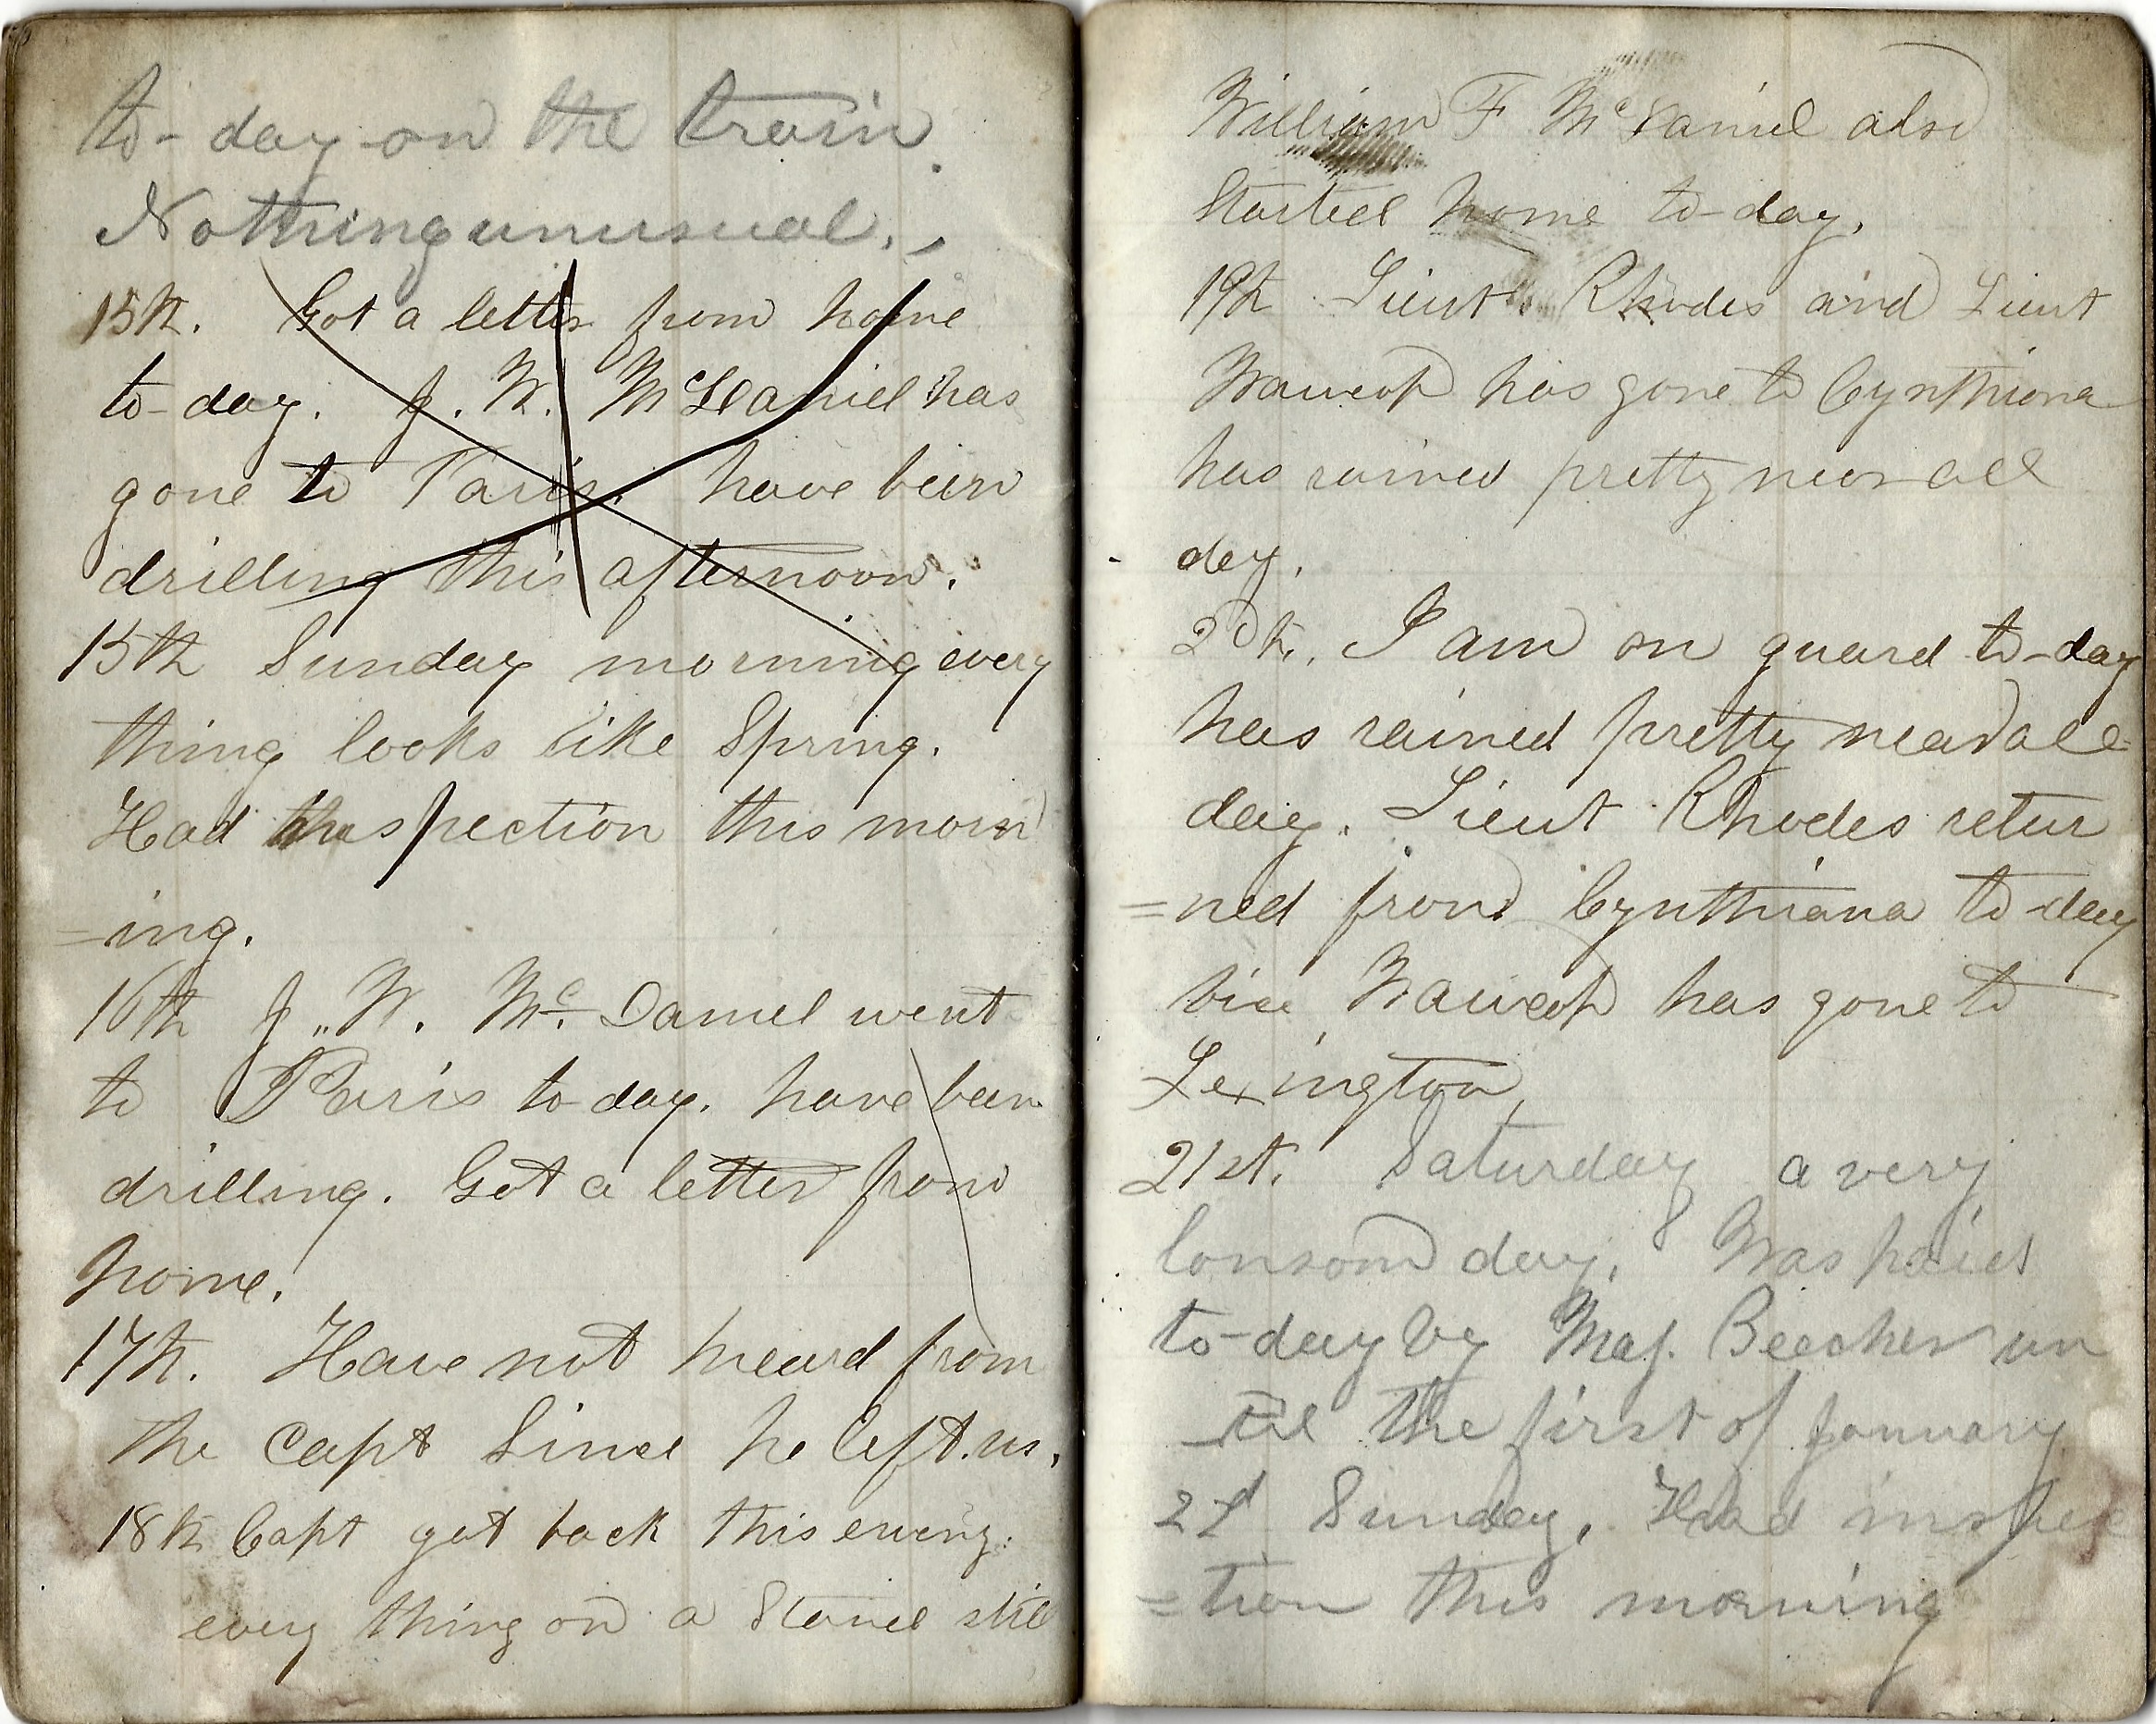 to-day on the train.
Nothing unusual.
15th. Got a letter from home
to-day. J. W. McDaniel has
gone to Paris. have been
drilling this afternoon.
15th Sunday morning every
thing looks like Spring.
Had inspection this morn
=ing.
16th J. W. Mc Daniel went
to Paris to-day. have been
drilling. Got a letter from
home.
17th. Have not heard from
the Capt Since he left us.
18th Capt got back this evening.
every thing on a Stand still
William F McDaniel also
Started home to-day.
19th Lieut Rhodes and Lieut
Wawcop has gone to Cynthiana
has rained pretty near all
day.
20th. I am on guard to-day
has rained pretty near all
day. Lieut Rhodes retur
=ned from Cynthiana to-day
Wawcop has gone to
Lexington,
21st. Saturday a very
lonsom day. Was paid
to-day by Maj. Beecher un
=til the first of January
22d Sunday. Had inspec
=tion this morning